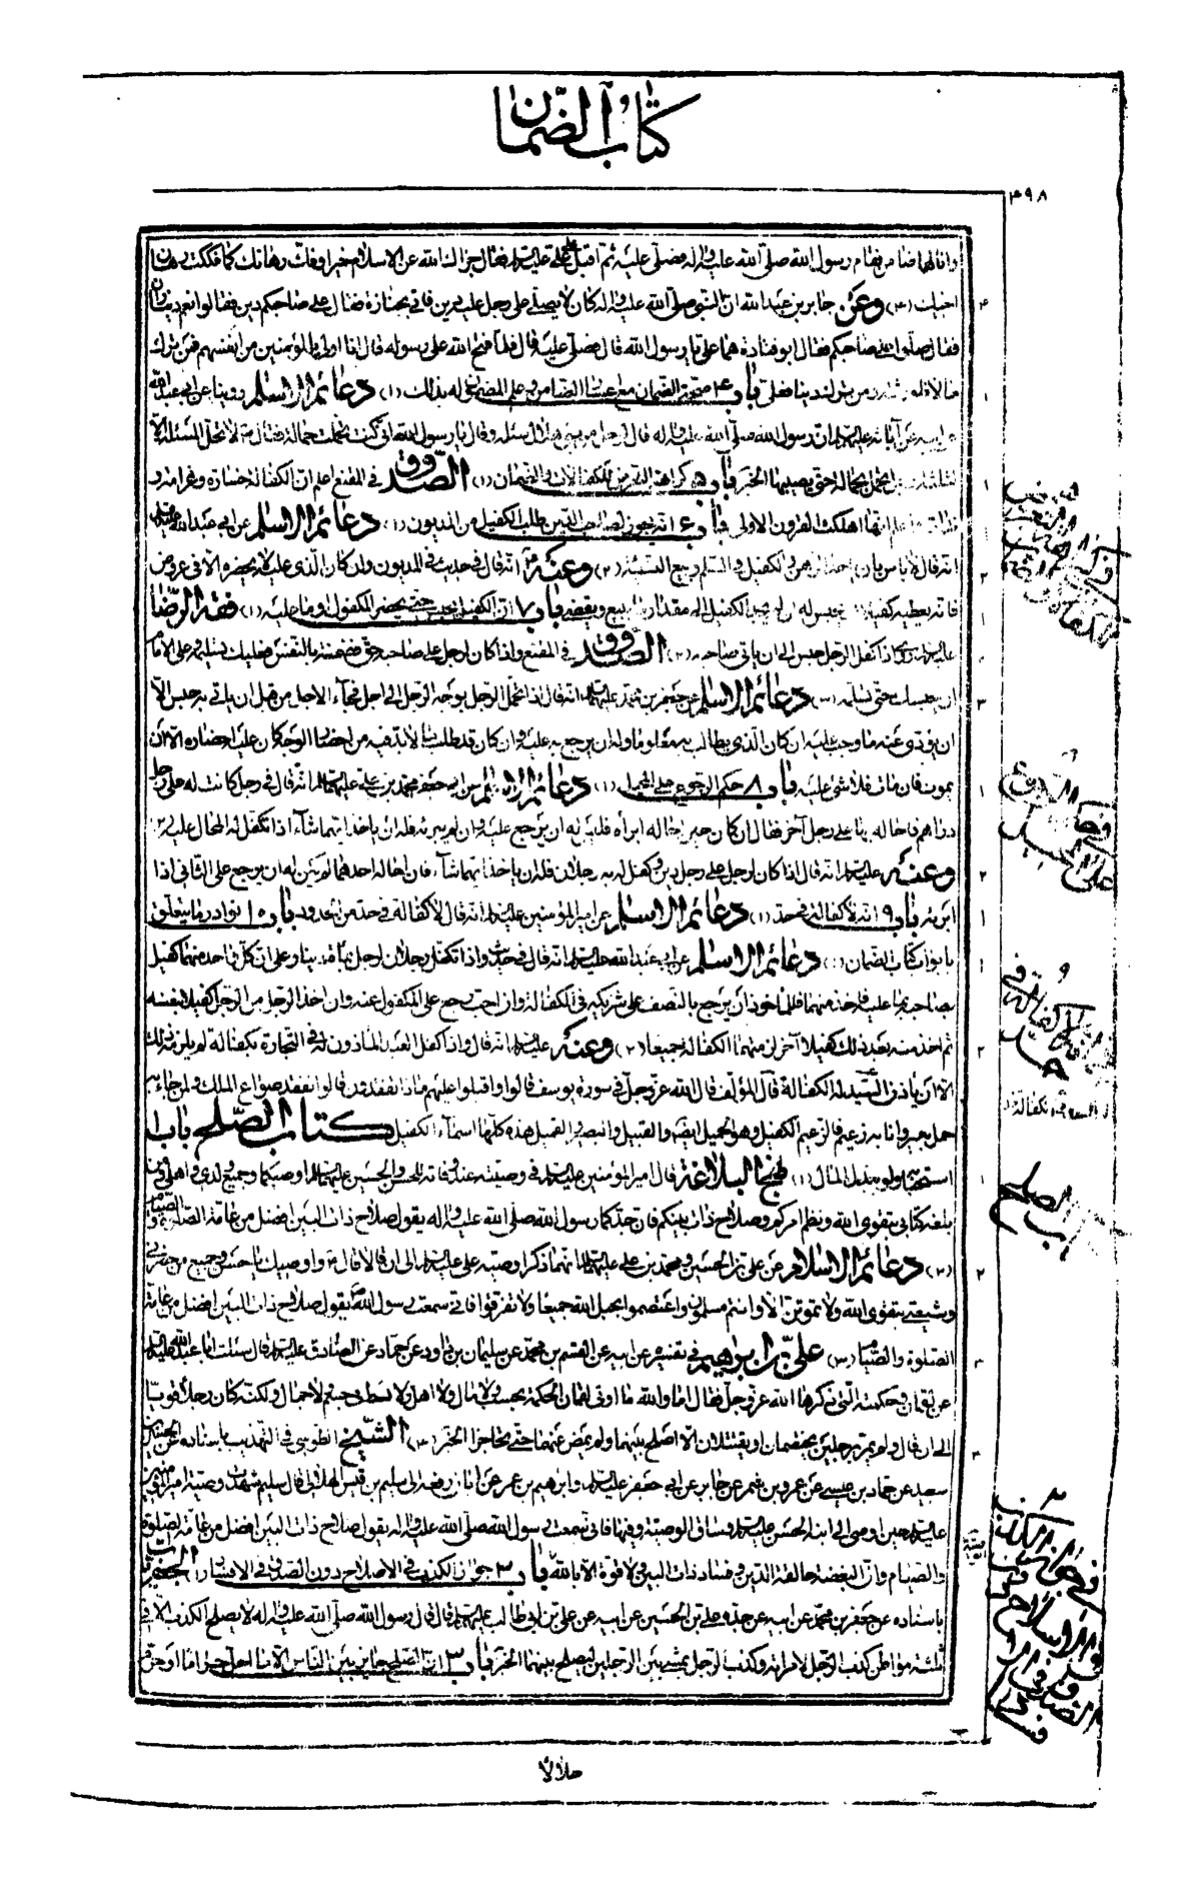 كتاب الضمان
٣٩٨
وانا لها ضامن فقام رسول الله صلى الله عليه واله فصلى عليه ثم اقبل على علي عليه السلم فقال جزاك الله عن الاسلام خيرا وفك رهانك كما فككت رهان
اخيك (٣) وعن جابر بن عبد الله ان النبي صلى الله عليه واله كان لا يصلي على رجل عليه دين فاتي بجنازة فقال على صاحبكم دين فقالوا نعم ديناران
فقال صلوا على صاحبكم فقال ابو قتادة هما علي يا رسول الله قال فصلى عليه قال فلما فتح الله على رسوله قال انا اولى بالمؤمنين من انفسهم فمن ترك
مالا فلورثته ومن ترك دينا فعلي باب ٤ صحة الضمان مع اعسار الضامن وعلم المضمون له بذلك (١) دعائم الاسلم روينا عن ابي عبد الله
عن ابيه عن آبائه عليهم السلم ان رسول الله صلى الله عليه واله قال لرجل وقال يا رسول الله اني كنت تحملت حمالة فقال لا تحل المسئلة الا
لثلثة رجل تحمل بحمالة حتى يصيبها الخبر باب ٥ كراهة التعرض للكفالات والضمان (١) الصدوق في المقنع اعلم ان الكفالة خسارة وغرامة و
ندامة واعلم انها اهلكت القرون الاولى باب ٦ انه يجوز لصاحب الدين طلب الكفيل من المديون (١) دعائم الاسلم عن ابي عبد الله عليه السلم
انه قال لا باس باخذ الرهن والكفيل في السلم وبيع النسيئة (٢) وعنه انه قال في حديث في المديون وان كان الذي عليه لا يحضره الا في عروض
فانه يعطيه كفيلا او يحبس له ان لم يجد الكفيل الى مقدار ما يبيع ويقضي باب ٧ ان الكفيل يحبس حتى يحضر المكفول او ما عليه (١) فقه الرضا
عليه السلم روي اذا كفل الرجل حبس الى ان ياتي صاحبه (٢) الصدوق في المقنع واذا كان لرجل على صاحبه حق فضمنته بالنفس فعليك تسليمه وعلى الامام
ان يحبسك حتى تسلمه (٣) دعائم الاسلم عن جعفر بن محمد عليهما السلم انه قال اذا تحمل الرجل بوجه الرجل الى اجل فجاء الاجل من قبل ان ياتي به حبس الا
ان يؤدي عنه ما وجب عليه ان كان الذي يطالب به معلوما وله ان يرجع به عليه وان كان قد طلب ما لا بد فيه من احضار الوجه كان عليه احضاره الا ان
يموت فان مات فلا شيء عليه باب ٨ حكم الرجوع على المحيل (١) دعائم الاسلم عن ابي جعفر محمد بن علي عليهما السلم انه قال في رجل كانت له على رجل
دراهم فاحاله بها على رجل آخر فقال ان كان حين احاله ابرأه فليس له ان يرجع عليه وان لم يبرئه فله ان ياخذ ايهما شاء اذا تكفل له المحال عليه
وعنه عليه السلم انه قال اذا كان لرجل على رجل دين وكفل له به رجلان فله ان ياخذ ايهما شاء فان احاله احدهما لم يكن له ان يرجع على الثاني اذا
ابرئه باب ٩ انه لا كفالة في حد (١) دعائم الاسلم عن امير المؤمنين عليه السلم انه قال لا كفالة في حد من الحدود باب ١٠ نوادر ما يتعلق
بابواب كتاب الضمان (١) دعائم الاسلم عن ابي عبد الله عليه السلم انه قال في حديث واذا تكفل رجلان لرجل بمائة دينار على ان كل واحد منهما كفيل
بصاحبه بما عليه فاخذ منهما فللماخوذ ان يرجع بالنصف على شريكه في الكفالة وان احب رجع على المكفول عنه وان اخذ الرجل من الرجل كفيلا بنفسه
ثم اخذ منه بعد ذلك كفيلا آخر لزمتهما الكفالة جميعا (٢) وعنه عليه السلم انه قال واذا كفل العبد الماذون له في التجارة بكفالة لم يلزمه ذلك
الا ان ياذن السيد له الكفالة قال المؤلف قال الله عز وجل في سورة يوسف قالوا واقبلوا عليهم ماذا تفقدون قالوا نفقد صواع الملك ولمن جاء به
حمل بعير وانا به زعيم فالزعيم الكفيل وهو الحميل ايضا والقبيل والنصير والقميل هذه كلها اسماء الكفيل كتاب الصلح باب ١
استحبابه ولو ببذل المال (١) نهج البلاغة قال امير المؤمنين عليه السلم في وصيته عند وفاته للحسن والحسين عليهما السلم اوصيكما وجميع ولدي واهلي ومن
بلغه كتابي بتقوى الله ونظم امركم وصلاح ذات بينكم فان جدكما رسول الله صلى الله عليه واله يقول صلاح ذات البين افضل من عامة الصلوة والصيام
(٢) دعائم الاسلام عن علي بن الحسين ومحمد بن علي عليهما السلم انهما ذكرا وصية علي عليه السلم الى ان قالا قال واوصيك يا حسن وجميع من حضرني
وشيعتي بتقوى الله ولا تموتن الا وانتم مسلمون واعتصموا بحبل الله جميعا ولا تفرقوا فاني سمعت رسول الله يقول صلاح ذات البين افضل من عامة
الصلوة والصيام (٣) علي بن ابراهيم في تفسيره عن ابيه عن القسم بن محمد عن سليمان بن داود عن حماد عن الصادق عليه السلم قال سئلت ابا عبد الله عليه السلم
عن لقمان وحكمته التي ذكرها الله عز وجل فقال اما والله ما اوتي لقمان الحكمة بحسب ولا مال ولا اهل ولا بسط في جسم ولا جمال ولكنه كان رجلا قويا
الى ان قال ولم يمر برجلين يختصمان او يقتتلان الا اصلح بينهما ولم يمض عنهما حتى تحاجزا الخبر (٤) الشيخ الطوسي في التهذيب باسناده عن الحسين بن
سعيد عن حماد بن عيسى عن عمرو بن شمر عن جابر عن ابي جعفر عليه السلم وابراهيم بن عمر عن ابان رفعه الى سليم بن قيس الهلالي قال سليم شهدت وصية امير المؤمنين
عليه السلم حين اوصى الى ابنه الحسن عليه السلم وساق الوصية وفيها فاني سمعت رسول الله صلى الله عليه واله يقول صلاح ذات البين افضل من عامة الصلوة
والصيام وان البغضة حالقة الدين وفساد ذات البين ولا قوة الا بالله باب ٢ جواز الكذب في الاصلاح دون الصدق في الافساد (١) الجعفريات
باسناده عن جعفر بن محمد عن ابيه عن جده علي بن الحسين عن ابيه عن علي بن ابي طالب عليهم السلم قال قال رسول الله صلى الله عليه واله لا يصلح الكذب الا في
ثلثة مواطن كذب الرجل لامراته وكذب الرجل يمشي بين الرجلين ليصلح بينهما الخبر باب ٣ ان الصلح جائز بين الناس الا ما احل حراما او حرم
حلالا